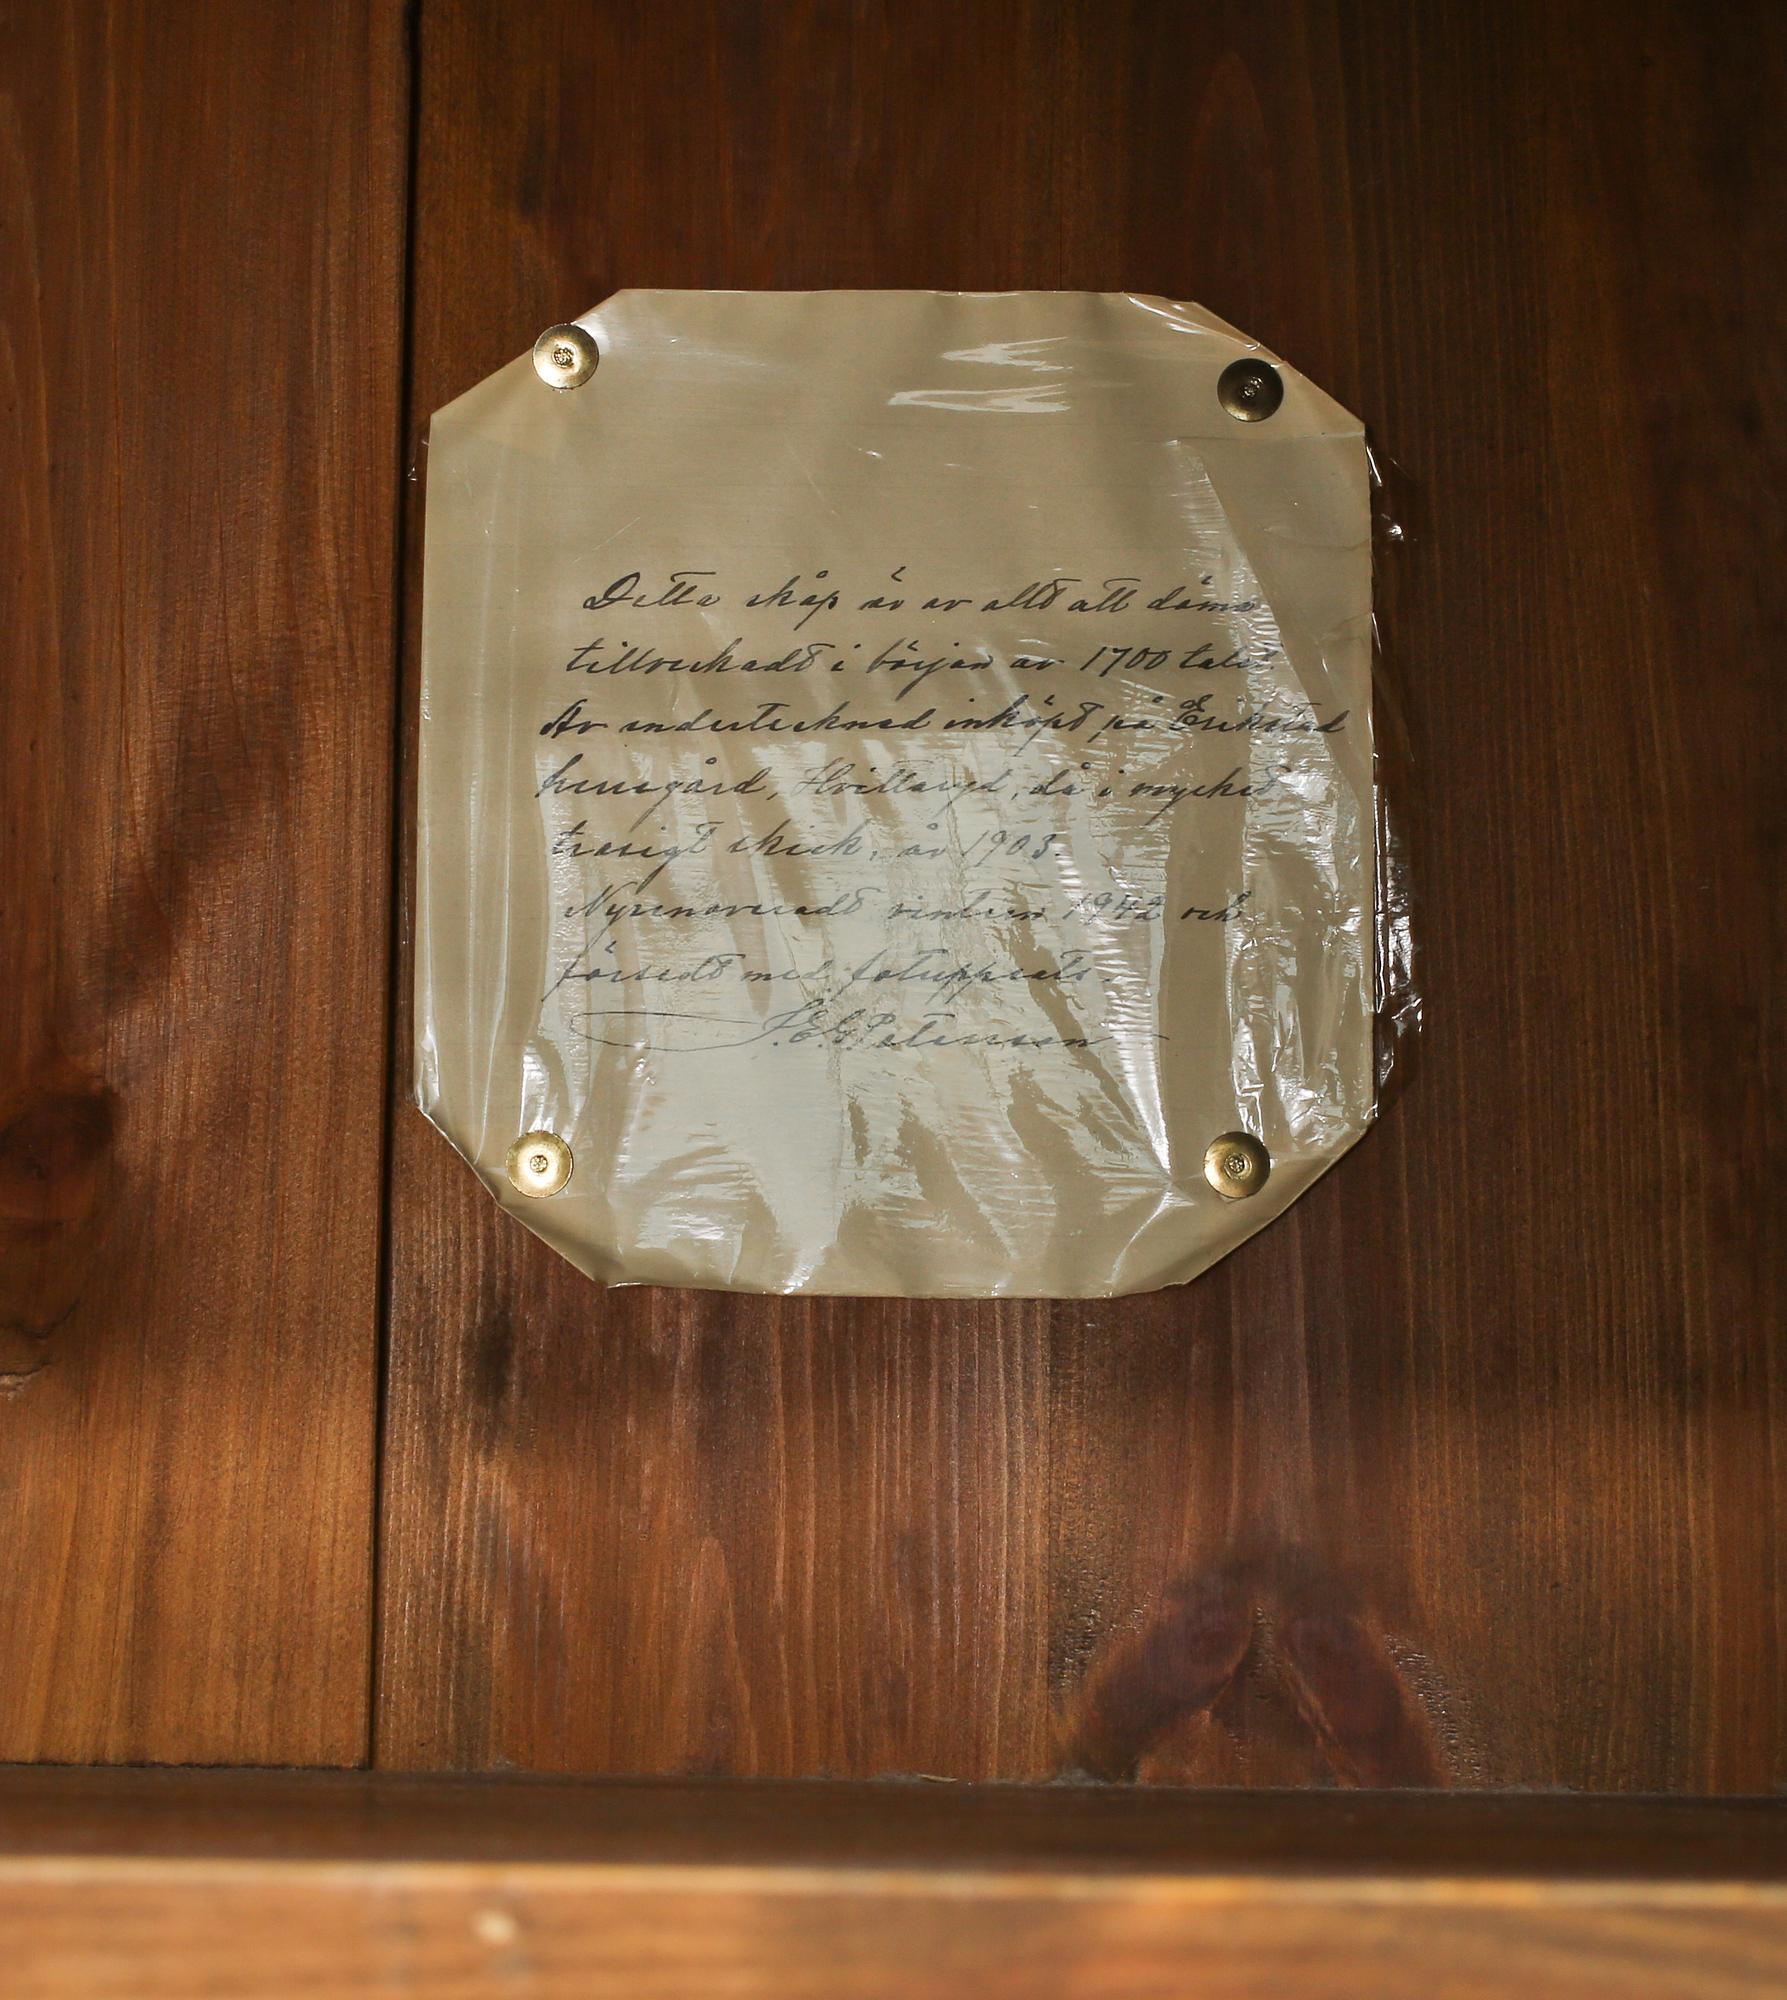 Detta skåp är av allt att döma
tillverkadt i början av 1700 talet.
Av undertecknad inköpt på Erikstad
herregård, Hvittaryd, då i mycket
trasigt skick, år 1903.
Nyrenoveradt vintern 1942 och
försedt med fotuppsats.
J.E.G. Peterson